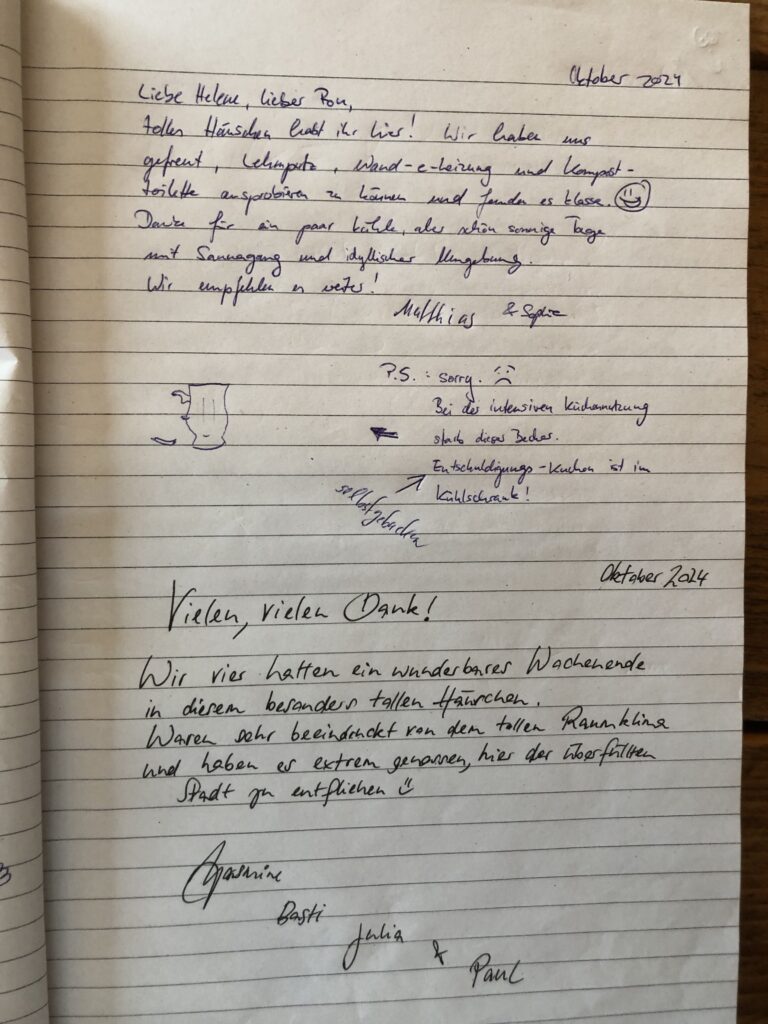 Oktober 2024
Liebe Helene, lieber Ron,
tolles Häuschen habt ihr hier! Wir haben uns
gefreut, Lehmputz, Wand-e-heizung und Kompost-
toilette ausprobieren zu können und fanden es klasse.
Danke für ein paar kühle, aber schön sonnige Tage
mit Saunagang und idyllischer Umgebung.
Wir empfehlen es weiter!
Matthias & Sophie
P.S.: sorry.
Bei der intensiven Küchennutzung
starb dieser Becher.
Entschuldigungs-Kuchen ist im
Kühlschrank!
selbstgebacken
Oktober 2024
Vielen, vielen Dank!
Wir vier hatten ein wunderbares Wochenende
in diesem besonders tollen Häuschen.
Waren sehr beeindruckt von dem tollen Raumklima
und haben es extrem genossen, hier der überfüllten
Stadt zu entfliehen
Basti
Julia &
Paul